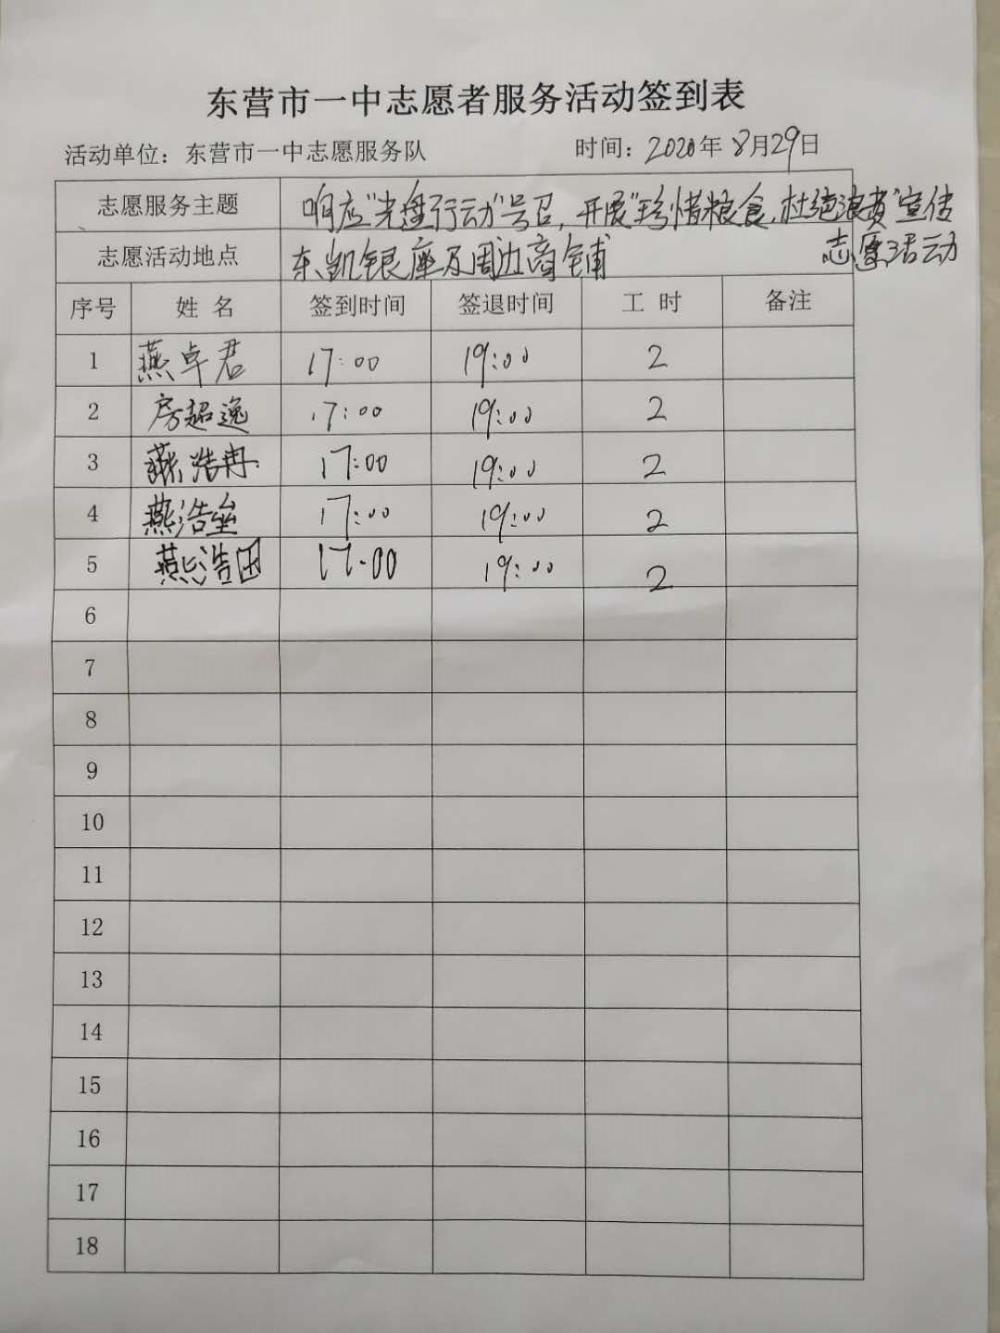 东营市一中志愿者服务活动签到表
活动单位：东营市一中志愿服务队 时间：2020年8月29日
志愿服务主题 响应"光盘行动"号召，开展"珍惜粮食，杜绝浪费"宣传
志愿活动
志愿活动地点 东凯银座及周边商铺
序号 姓名 签到时间 签退时间 工时 备注
1 燕卓君 17:00 19:00 2
2 房超逸 17:00 19:00 2
3 燕浩冉 17:00 19:00 2
4 燕浩垒 17:00 19:00 2
5 燕浩田 17:00 19:00 2
6
7
8
9
10
11
12
13
14
15
16
17
18